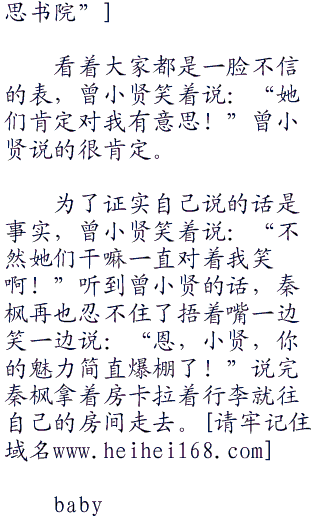 思书院”]
看着大家都是一脸不信
的表，曾小贤笑着说：“她
们肯定对我有意思！”曾小
贤说的很肯定。
为了证实自己说的话是
事实，曾小贤笑着说：“不
然她们干嘛一直对着我笑
啊！”听到曾小贤的话，秦
枫再也忍不住了捂着嘴一边
笑一边说：“恩，小贤，你
的魅力简直爆棚了！”说完
秦枫拿着房卡拉着行李就往
自己的房间走去。[请牢记住
域名www.heihei168.com]
baby